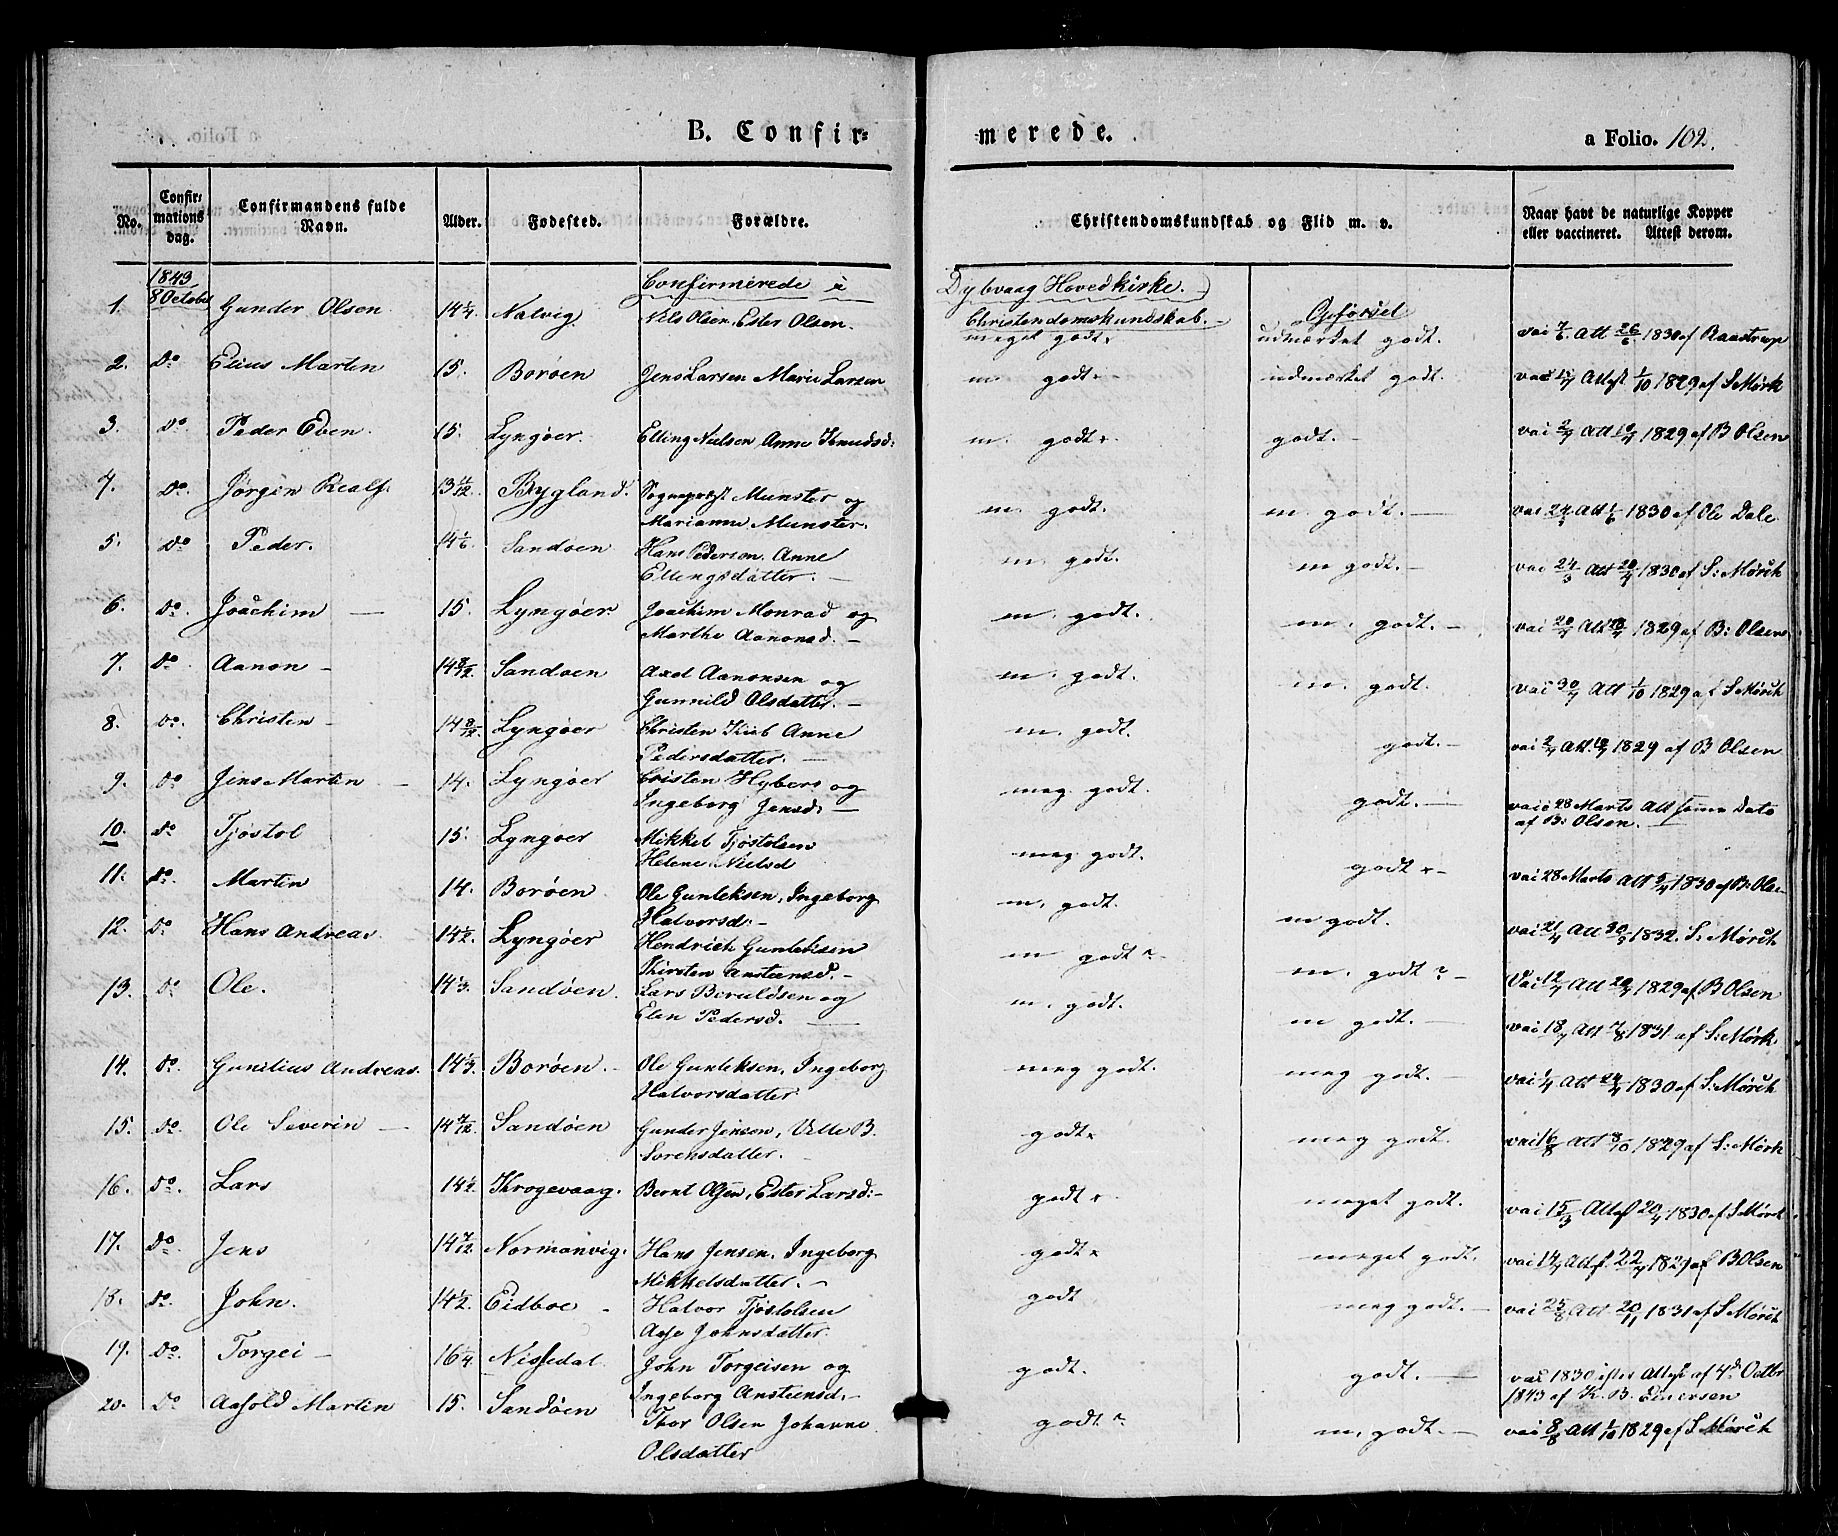 B. Confir-
merede.
a Folio. 102.
No.
Confir-
mations
dag.
Confirmandens fulde
Navn.
Alder.
Fødested.
Forældre.
Christendomskundskab og Flid m. v.
Naar havt de naturlige Kopper
eller vaccineret. Attest derom.
1843
Confirmerede i Dybvaag Hovedkirke.
Christendomskundskab. Opførsel
1. 8 October Gunder Olsen 14 1/4 Nalvig Nils Olsen, Ester Olsen. meget godt. udmærket godt. vac 7/6 Att 26/6 1830 af Raastrup
2. Do Elius Martin 15. Borøen Jens Larsen Marie Larsen m. godt. udmærket godt. Attest 1/10 1829 af S Mørk
3. Do Peder Even 15. Lyngøer. Elling Nielsen Anne Knudsd: m. godt. godt. 1829 af B Olsen
4. Do. Jørgen 13 11/12 Bygland. Sognepræst Munster og
Marianne Munster. m. godt. m. godt. 1830 af Ole Dale
5. Do Peder. 14 1/6 Sandøen Hans Pederson. Anne
Ellingsdatter. m. godt. m godt. vac 24/3 Att 20/4 1830 af S: Mørck
6. Do. Joachim 15. Lyngøer Joachim Monrad og
Marthe Aanonsd. m. godt. m. godt. 1829 af B: Olsen
7. Do. Aanon 14 8/12 Sandøen Axel Aanonsen og
Gunnild Olsdatter. m. godt. m. godt. Att 1/10 1829 af S Mørck
8. Do. Christen 14 Lyngøer Christen Anne
Pedersdatter. m. godt. godt. 1829 af B Olsen
9. Do Jens Martin 14. Lyngøer Cristen og
Ingeborg Jensd: meg godt. godt. vac 28 Marts Att samme Dato
af B: Olsen.
10. Do Tjøstol 15. Lyngøer Mikkel Tjøstolsen
Helene Nielsd meg godt. godt vac 28 Marts Att 1830 af B: Olse
11. Do. Martin 14. Borøen Ole Gunleksen, Ingeborg
Halvorsd. m, godt. m godt. 1832. S: Mørck
12. Do Hans Andreas 14 1/2. Lyngøer Hendrich Gunleksen
Kirsten Ansteensd. m godt m. godt 1829 af B Olsen
13. Do Ole. 14 1/3. Sandøen. Lars Beruldsen og
Elen Pedersd. m. godt. m godt. 1831 af S: Mørk.
14. Do. Gunilius Andreas. 14 Borøen. Ole Gunleksen, Ingeborg
Halvorsdatter meg godt. meg godt. 1830 af S: Mørck
15. Do. Ole Severin 14 7/12 Sandøen Gunder Jensen, B.
Sorensdatter. godt meg godt. 1829 af S: Mørk
16. Do. Lars 14 1/2 Krogevaag. Bernt Olsen, Ester Larsd: godt meget godt. vac 15/3 Attest 20/4 1830 af S Mørck
17. Do. Jens 14 7/12 Normanvig. Hans Jensen, Ingeborg
Mikkelsdatter. godt meget godt. 1829 af B Olsen
18. Do. John. 14 1/2. Eidboe Halvor Tjøstolsen
Aase Johnsdatter. godt meg godt. vac 25/8 Att 20/11 1831 af S Mørck
19. Do. Torgei 16 1/4 Nissedal John Torgeisen og
Ingeborg Ansteensd. godt. godt. vac 1830 efter Attest af 4de Octbr
1843 af K. B. Einersen
20. Do Aasold Martin 15. Sandøen Thor Olsen Johanne
Olsdatter godt m, godt. vac 8/8 Att 1/10 1829 af S Mørck